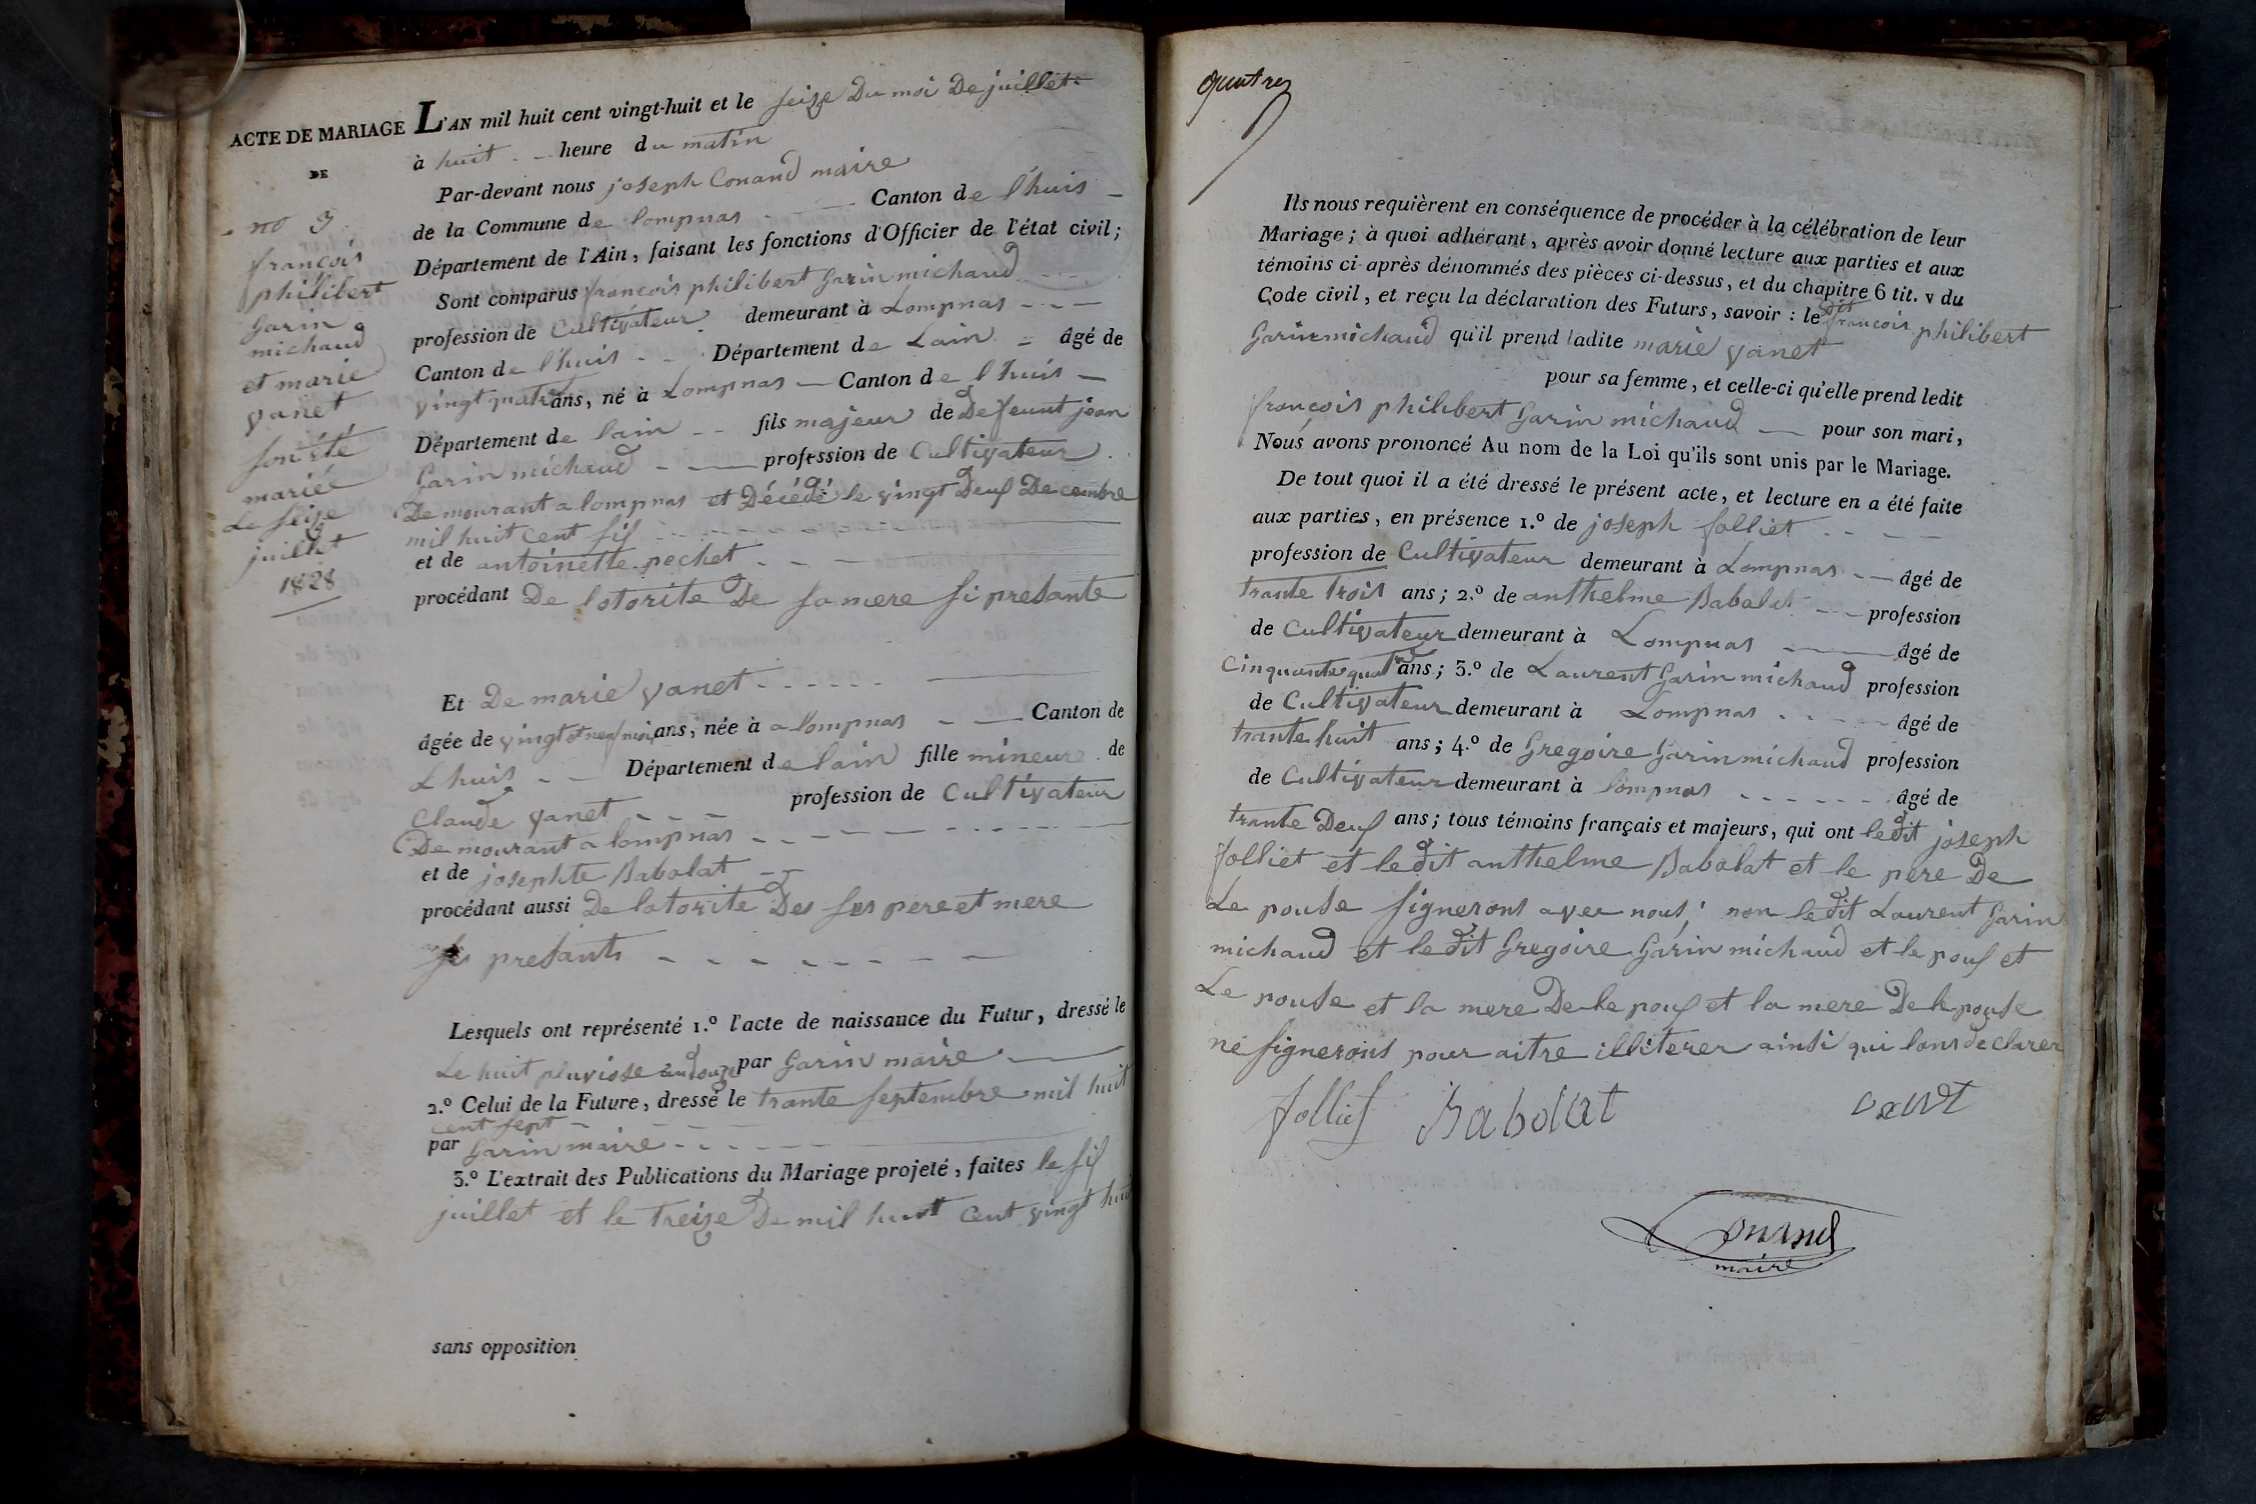 ACTE DE MARIAGE
DE
no 3
francois
philibert
Garin
michaud
et marie
vanet
son été
mariée
Le seize
juillet
1828
L'AN mil huit cent vingt-huit et le seize Du moi De juillet
à huit heure du matin
Par-devant nous joseph Conand maire
de la Commune de lompnas Canton de l'huis
Département de l'Ain, faisant les fonctions d'Officier de l'état civil;
Sont comparus francois philibert Garin michaud
profession de Cultivateur demeurant à Lompnas
Canton de l'huis Département de Lain âgé de
vingt quatre ans, né à Lompnas Canton de l'huis
Département de lain fils majeur de Defeunt jean
Garin michaud profession de Cultivateur
Demourant a lompnas et Décédé le vingt Deus Decembre
mil huit cent sis
et de antoinette pochet
procédant De lotorite De sa mere si presante
Et De marie vanet
âgée de vingt ans, née à a lompnas Canton de
L huis Département de lain fille mineure de
Claude vanet profession de Cultivateur
Demourant a lompnas
et de josephte Babolat
procédant aussi De lotorite Des ses pere et mere
si presants
Lesquels ont représenté 1.º l'acte de naissance du Futur, dressé le
Le huit pluviose an douze par Garin maire
2.º Celui de la Future, dressé le trante septembre mil huit
cent sept
par Garin maire
3.º L'extrait des Publications du Mariage projeté, faites le sis
juillet et le treize De mil huit cent vingt huit
sans opposition
quatre
Ils nous requièrent en conséquence de procéder à la célébration de leur
Mariage; à quoi adhérant, après avoir donné lecture aux parties et aux
témoins ci après dénommés des pièces ci-dessus, et du chapitre 6 tit. v du
Code civil, et reçu la déclaration des Futurs, savoir : le dit francois philibert
Garin michaud qu'il prend ladite marie vanet
pour sa femme, et celle-ci qu'elle prend ledit
francois philibert Garin michaud pour son mari,
Nous avons prononcé Au nom de la Loi qu'ils sont unis par le Mariage.
De tout quoi il a été dressé le présent acte, et lecture en a été faite
aux parties, en présence 1.º de joseph folliet
profession de Cultivateur demeurant à Lompnas âgé de
trante trois ans; 2.º de anthelme Babolat profession
de Cultivateur demeurant à Lompnas âgé de
Cinquante quatre ans; 3.º de Laurent Garin michaud profession
de Cultivateur demeurant à Lompnas âgé de
trante huit ans; 4.º de Gregoire Garin michaud profession
de Cultivateur demeurant à lompnas âgé de
trante Deus ans; tous témoins français et majeurs, qui ont ledit joseph
folliet et ledit anthelme Babolat et le pere De
Le pouse signerons avec nous; non ledit Laurent Garin
michaud et ledit Gregoire Garin michaud et le pous et
Le pouse et la mere De le pous et la mere De le pouse
ne signerons pour aitre illiterer ainsi qui lons declarer
folliet Babolat vanet
Conand
maire